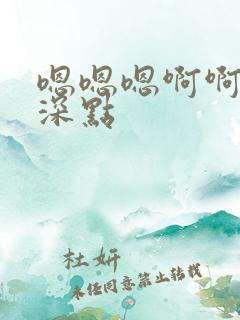 嗯嗯嗯啊啊
深點
杜妍
未经同意禁止转载